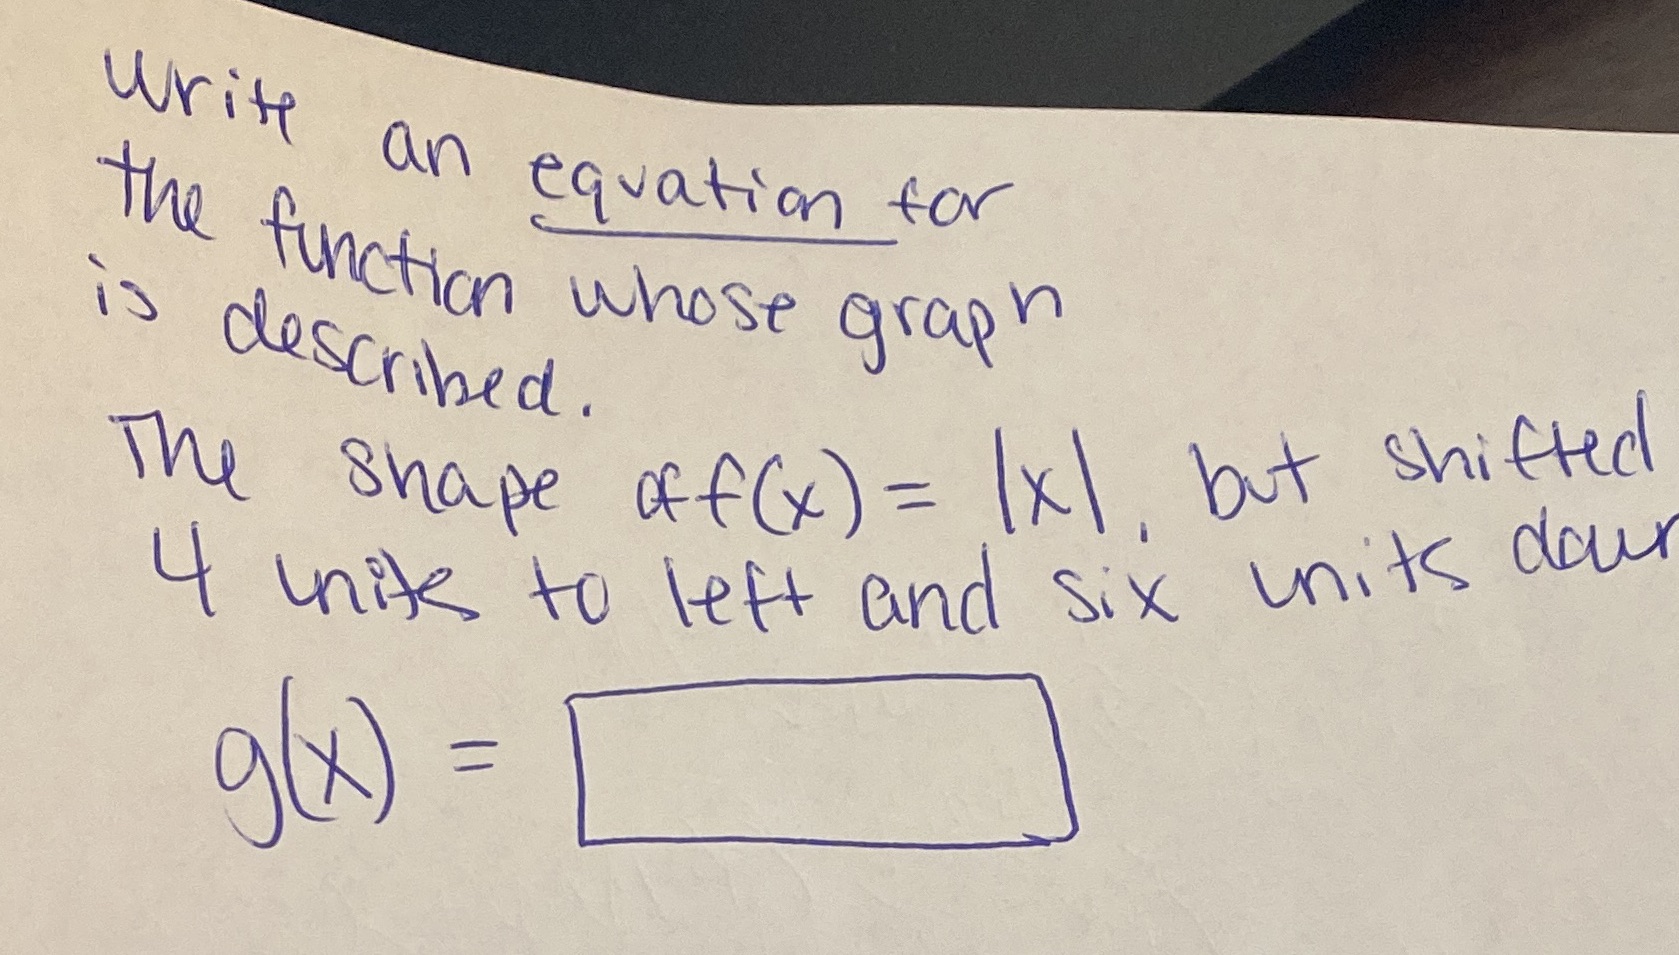 Write an equation for
the function whose graph
is described.
The shape of f(x) = |x|, but shifted
4 units to left and six units down
g(x) =